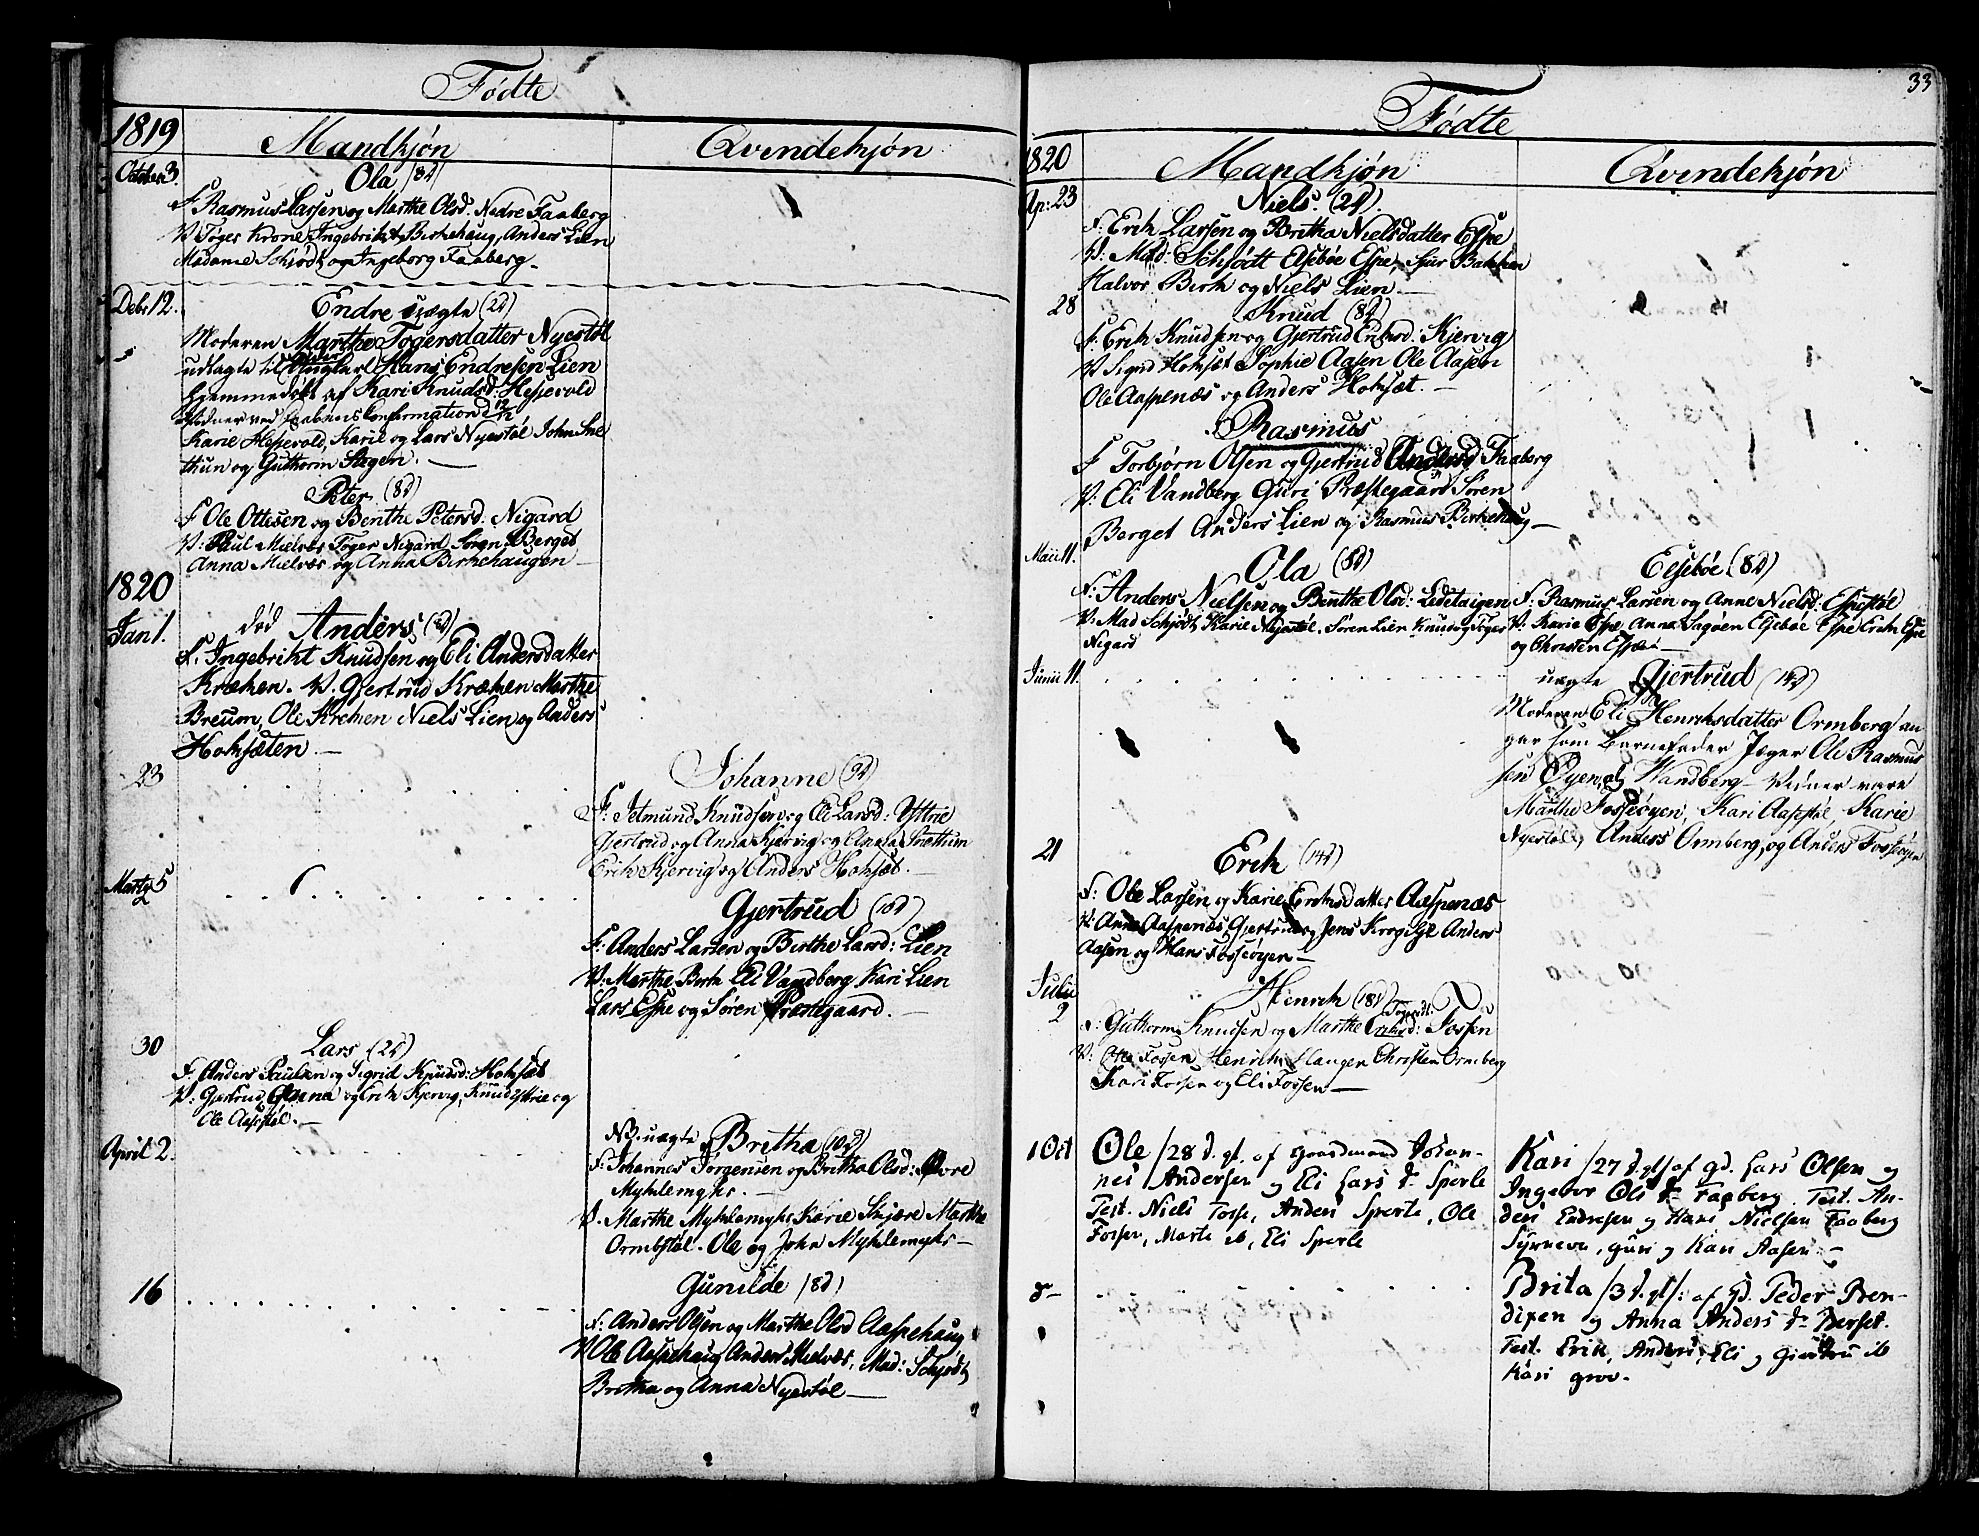 Fødte
1819
Mandkjøn
Qvindekjøn
October 3.
Ola (8d)
F Rasmus Larsen og Marthe Olsd. Nedre Faaberg
V Tøger Krone, Ingebrikt Birkehaug, Anders Lien
Madame Schjødt og Ingeborg Faaberg.
Debr 12.
Endre uægte (2d)
Moderen Marthe Togersdatter Nyestøl
udlagte til Hans Endresen Lien
hjemmedøbt af Kari Knudsd: Hessevold
Vidner ved Daabens Confirmation
Karie Hessevold, Karie og Lars Nyestøl John Sne
thun og Guthorm Stegen.
Peter (8d)
F Ole Ottesen og Benthe Petersd: Nigard
V: Paul Mielvær Tøger Nigard, Søren Berget
Anna Mielvær og Anna Birkehaugen
1820
Jan 1.
død Anders (2d)
F. Ingebrikt Knudsen og Eli Andersdatter
Kræken. V. Gjertrud Kræken Marthe
Breum, Ole Kræken Niels Lien og Anders
Hokjæten.
23
Johanne (9d)
F: Jetmund Knudsen og Eli Larsd: Yttrie
Gjertrud og Anna Kjervig og Anna Snethun
Erik Kjervig og Anders Hoksæt.
Marty 5
Gjertrud (10d)
F: Anders Larsen og Birthe Larsd: Lien
V: Marthe Birk Eli Vandberg Kari Lien
Lars Espe og Søren Præstegaard.
30
Lars (2d)
F. Anders Paulsen og Sigrid Knudsd: Hoksæt
V: Gjertrud, Anna og Erik Kjervig, Knud Yttrie og
Ole Aasestøl.
April 2.
NB. uægte Britha (10d)
F: Johannes Jørgensen og Britha Olsd: Øvre
Myklemyhr.
V. Marthe Myklemyhr Karie Skjære Marthe
Ormbstøl. Ole og John Myklemyhr
16
Gunilde (8d)
F: Anders Olsen og Marthe Olsd Aaspehaug
V Ole Aaspehaug Anders Mielvær, Mad: Schjødt,
Britha og Anna Nyestøl
33
Fødte
1820
Mandkjøn
Qvindekjøn
Ap: 23
Niels. (2d)
F: Erik Larsen og Britha Nielsdatter Espe
V: Mad: Schjødt Elsebøe Espe, Sjur Bakken
Halvor Birk og Niels Lien
28
Knud (8d)
F: Erik Knudsen og Gjertrud Eriksd: Kjervig
V Sigrid Hoksæt Sophie Aasen Ole Aasen
Ole Aaspenæs og Anders Hoksæt.
Rasmus
F Torbjørn Olsen og Gjertrud Andersd Faaberg
V: Eli Vandberg Guri Præstegaard Søren
Berget Anders Lien og Rasmus Birkehaug
Maii 11.
Ola (8d)
F: Anders Nielsen og Benthe Olsd: Ledetaigen
V: Mad Schjødt, Karie Nyestøl, Søren Lien Knud og Tøger
Nigard
Elsebøe (8d)
F: Rasmus Larsen og Anne Nielsd: Espestøl
V: Karie Espe, Anna Sagøen Elsebøe Espe Erik Espe
og Christen Espe
Junii 11.
uægte Gjertrud (14d)
Moderen Eli Henriksdatter Ormberg an
gav som Barnefader Jæger Ole Rasmus
sen Øyen, af Vandberg Vidner vare
Marthe Fosseøyen, Kari Aasestøl, Karie
Nyestøl, Anders Ormberg, og Anders Fosseøyen
21
Erik (14d)
F: Ole Larsen og Karie Eriksdatter Aaspenæs
V: Anna Aaspenæs Gjertrud og Jens Kroge Anders
Aasen og Hans Fosseøyen
Julii
2
Henrik (18d)
F: Guthorm Knudsen og Marthe Togersd: Fossen
V: Ole Fossen, Henrik Haugen Christen Ormberg
Kari Fossen og Eli Fossen
1 Oct
Ole /28 d. gl. af Gaardmand Johan-
nes Andersen og Eli Lars D. Sperle
Test. Niels Fosse, Anders Sperle, Ole
Fossen, Marte ib, Eli Sperle
Kari /27 d. gl/ af gd. Lars Olsen og
Ingebor Ols D. Faaberg. Test. An-
ders Endresen og Hans Nielsen Faaberg
Synneve, Guri og Kari Aasen.
8
Brita /3 d. gl/: af gd. Peder Ben-
dixen og Anna Anders D. Berset.
Test. Erik, Anders, Eli og Giertru ib
Kari Grov.